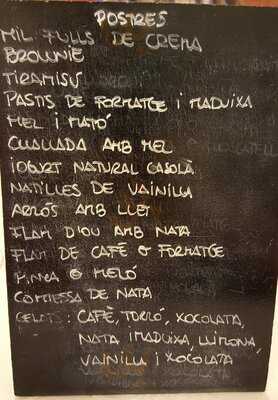 POSTRES
MIL FULLS DE CREMA
BROWNIE
TIRAMISÚ
PASTIS DE FORMATGE I MADUIXA
MEL I MATÓ
CUALLADA AMB MEL
IOGURT NATURAL CASOLÀ
NATILLES DE VAINILLA
ARRÓS AMB LLET
FLAM D'OU AMB NATA
FLAM DE CAFÈ O FORMATGE
PINYA O MELÓ
COPESSA DE NATA
GELATS: CAFÈ, TORRÓ, XOCOLATA,
NATA I MADUIXA, LLIMONA,
VAINILLA I XOCOLATA